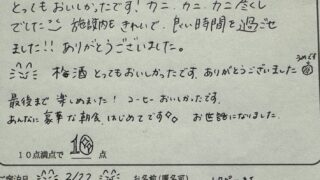 とってもおいしかったです！カニ、カニ、カニ尽くし
でした 施設内も きれいで、良い時間を過ごせ
ました!! ありがとうございました。
梅酒 とってもおいしかったです。ありがとうございました
最後まで 楽しめました！コーヒーおいしかったです。
あんなに豪華な朝食、はじめてです。お世話になりました。
10点満点で 10 点
2/22
お名前(匿名可)